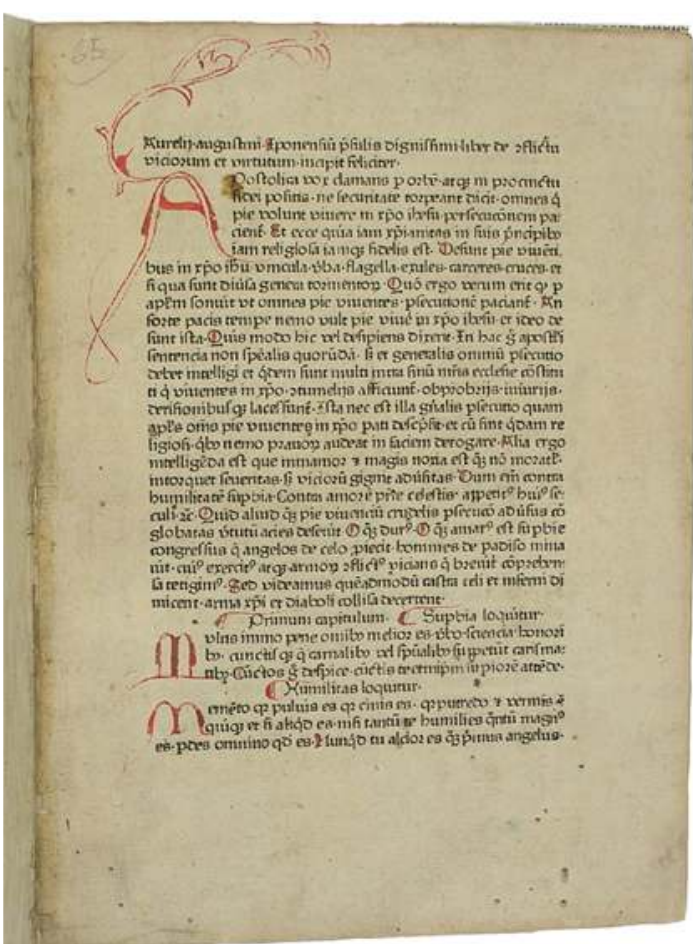 65
Aurelij augustini Iponensiū p̄sulis dignissimi liber de ↄflictu
viciorum et virtutum incipit feliciter·
APostolica vox clamans p orbē· atqꝫ in procinctu
fidei positis· ne securitate torpeant dicit· omnes q̄
pie volunt viuere in xp̄o ihesu· persecucionem pa
cient̄· Et ecce quia iam xp̄ianitas in suis p̄ncipibꝰ
iam religiosa iamqꝫ fidelis est· Desunt pie viuēti
bus in xp̄o ih̄u vincula· v̄ba· flagella· exules· carceres· cruces· et
si qua sunt diūsa genera tormentoꝝ· Quō ergo verum erit qꝫ p
apl̄m sonuit vt omnes pie viuentes· psecutionē paciant̄· An
forte pacis tempe nemo vult pie viuē in xp̄o ihesu· et ideo de
sunt ista· Quis modo hic vel desipiens dixerit· In hac g̊ apostl̄i
sentencia non sp̄ealis quorūdā· s̄ et generalis omniū psecutio
debet intelligi et q̄dem sunt multi intra sinū mr̄is ecclesie cōstitu
ti q̄ viuentes in xp̄o· ↄtumelijs afficiunt̄· obprobrijs· iniurijs·
derisionibusqꝫ lacessunt̄· Ista nec est illa gn̄alis psecutio quam
apl̄s om̄s pie viuentes in xp̄o pati descp̄sit· et cū sint q̄dam re
ligiosi· q̄bꝰ nemo prauoꝝ audeat in faciem derogare· Alia ergo
intelligēda est que inmanior ⁊ magis noxia est qꝫ nō mortal̄·
intorquet seueritas· s̄ viciorū gignit adūsitas· Dum em̄ contra
humilitatē supbia· Contra amorē pr̄ie celestis· appetitꝰ huiꝰ se·
culi ⁊c· Quid aliud qꝫ pie viuenciū crudelis psecucō adūsus cō
globatas v̄tutū acies deseuit· O qꝫ durꝰ· O qꝫ amarꝰ est supbie
congressus q̄ angelos de celo ꝓiecit· homines de padiso mina
uit· cuiꝰ exercitꝰ atqꝫ armoꝝ ↄflictꝰ viciani q̄ breuit̄ cōprehen
sa tetigimꝰ· Sed videamus quēadmodū castra celi et inferni di
micent· arma xp̄i et diaboli collisa decertent·
Primum capitulum· Supbia loquitur·
Multis immo pene om̄ibꝰ melior es· v̄bo· sciencia· honori
bꝰ· cunctisqꝫ q̄ carnalibꝰ vel sp̄ualibꝰ suppetūt carisma·
tibꝰ· Cūctos g̊ despice· cūctis te etmip̄m supiorē attēde·
Humilitas loquitur·
Memēto qꝫ puluis es qꝫ cinis es· qꝫ putredo ⁊ vermis ⁊
quicqꝫ et si aliq̄d es· nisi tantū te humilies q̄ntū magnꝰ
es· pdes omnino qd̄ es· Nunqd̄ tu alcior es qꝫ p̄mus angelus·